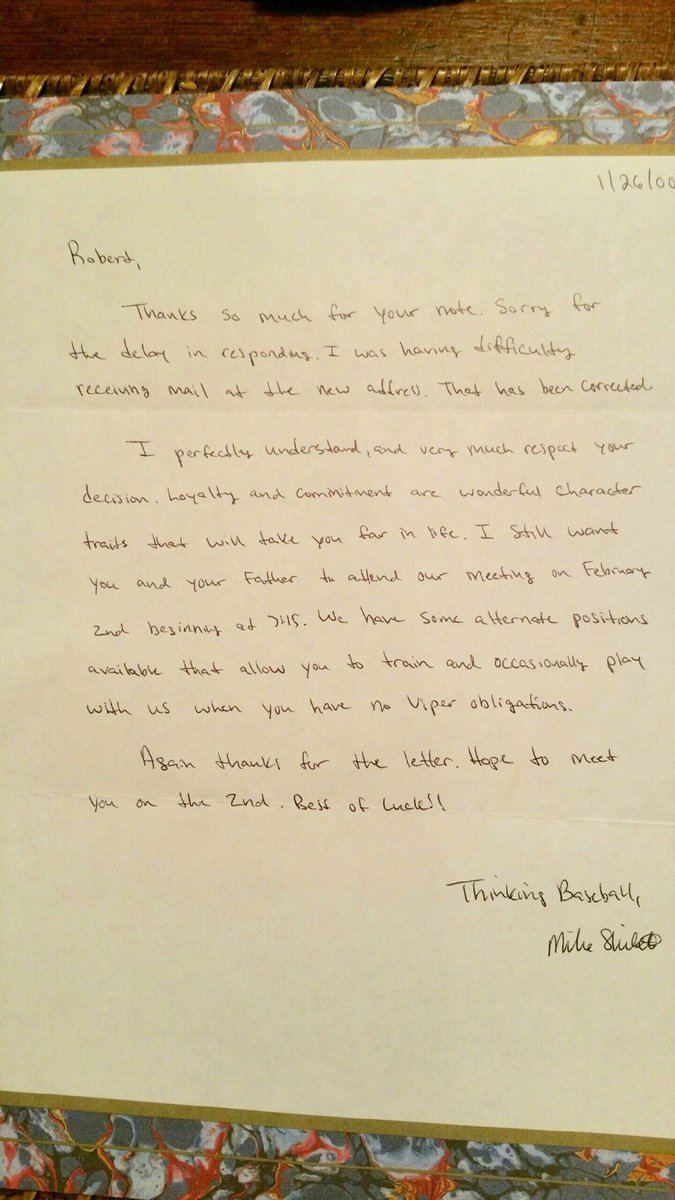 1/26/00
Robert,
Thanks so much for your note. Sorry for
the delay in responding. I was having difficulty
receiving mail at the new address. That has been corrected
I perfectly understand, and very much respect your
decision. Loyalty and commitment are wonderful character
traits that will take you far in life. I still want
you and your Father to attend our meeting on February
2nd beginning at 7:15. We have some alternate positions
available that allow you to train and occasionally play
with us when you have no Viper obligations.
Again thanks for the letter. Hope to meet
you on the 2nd. Best of Luck!!
Thinking Baseball,
Mike